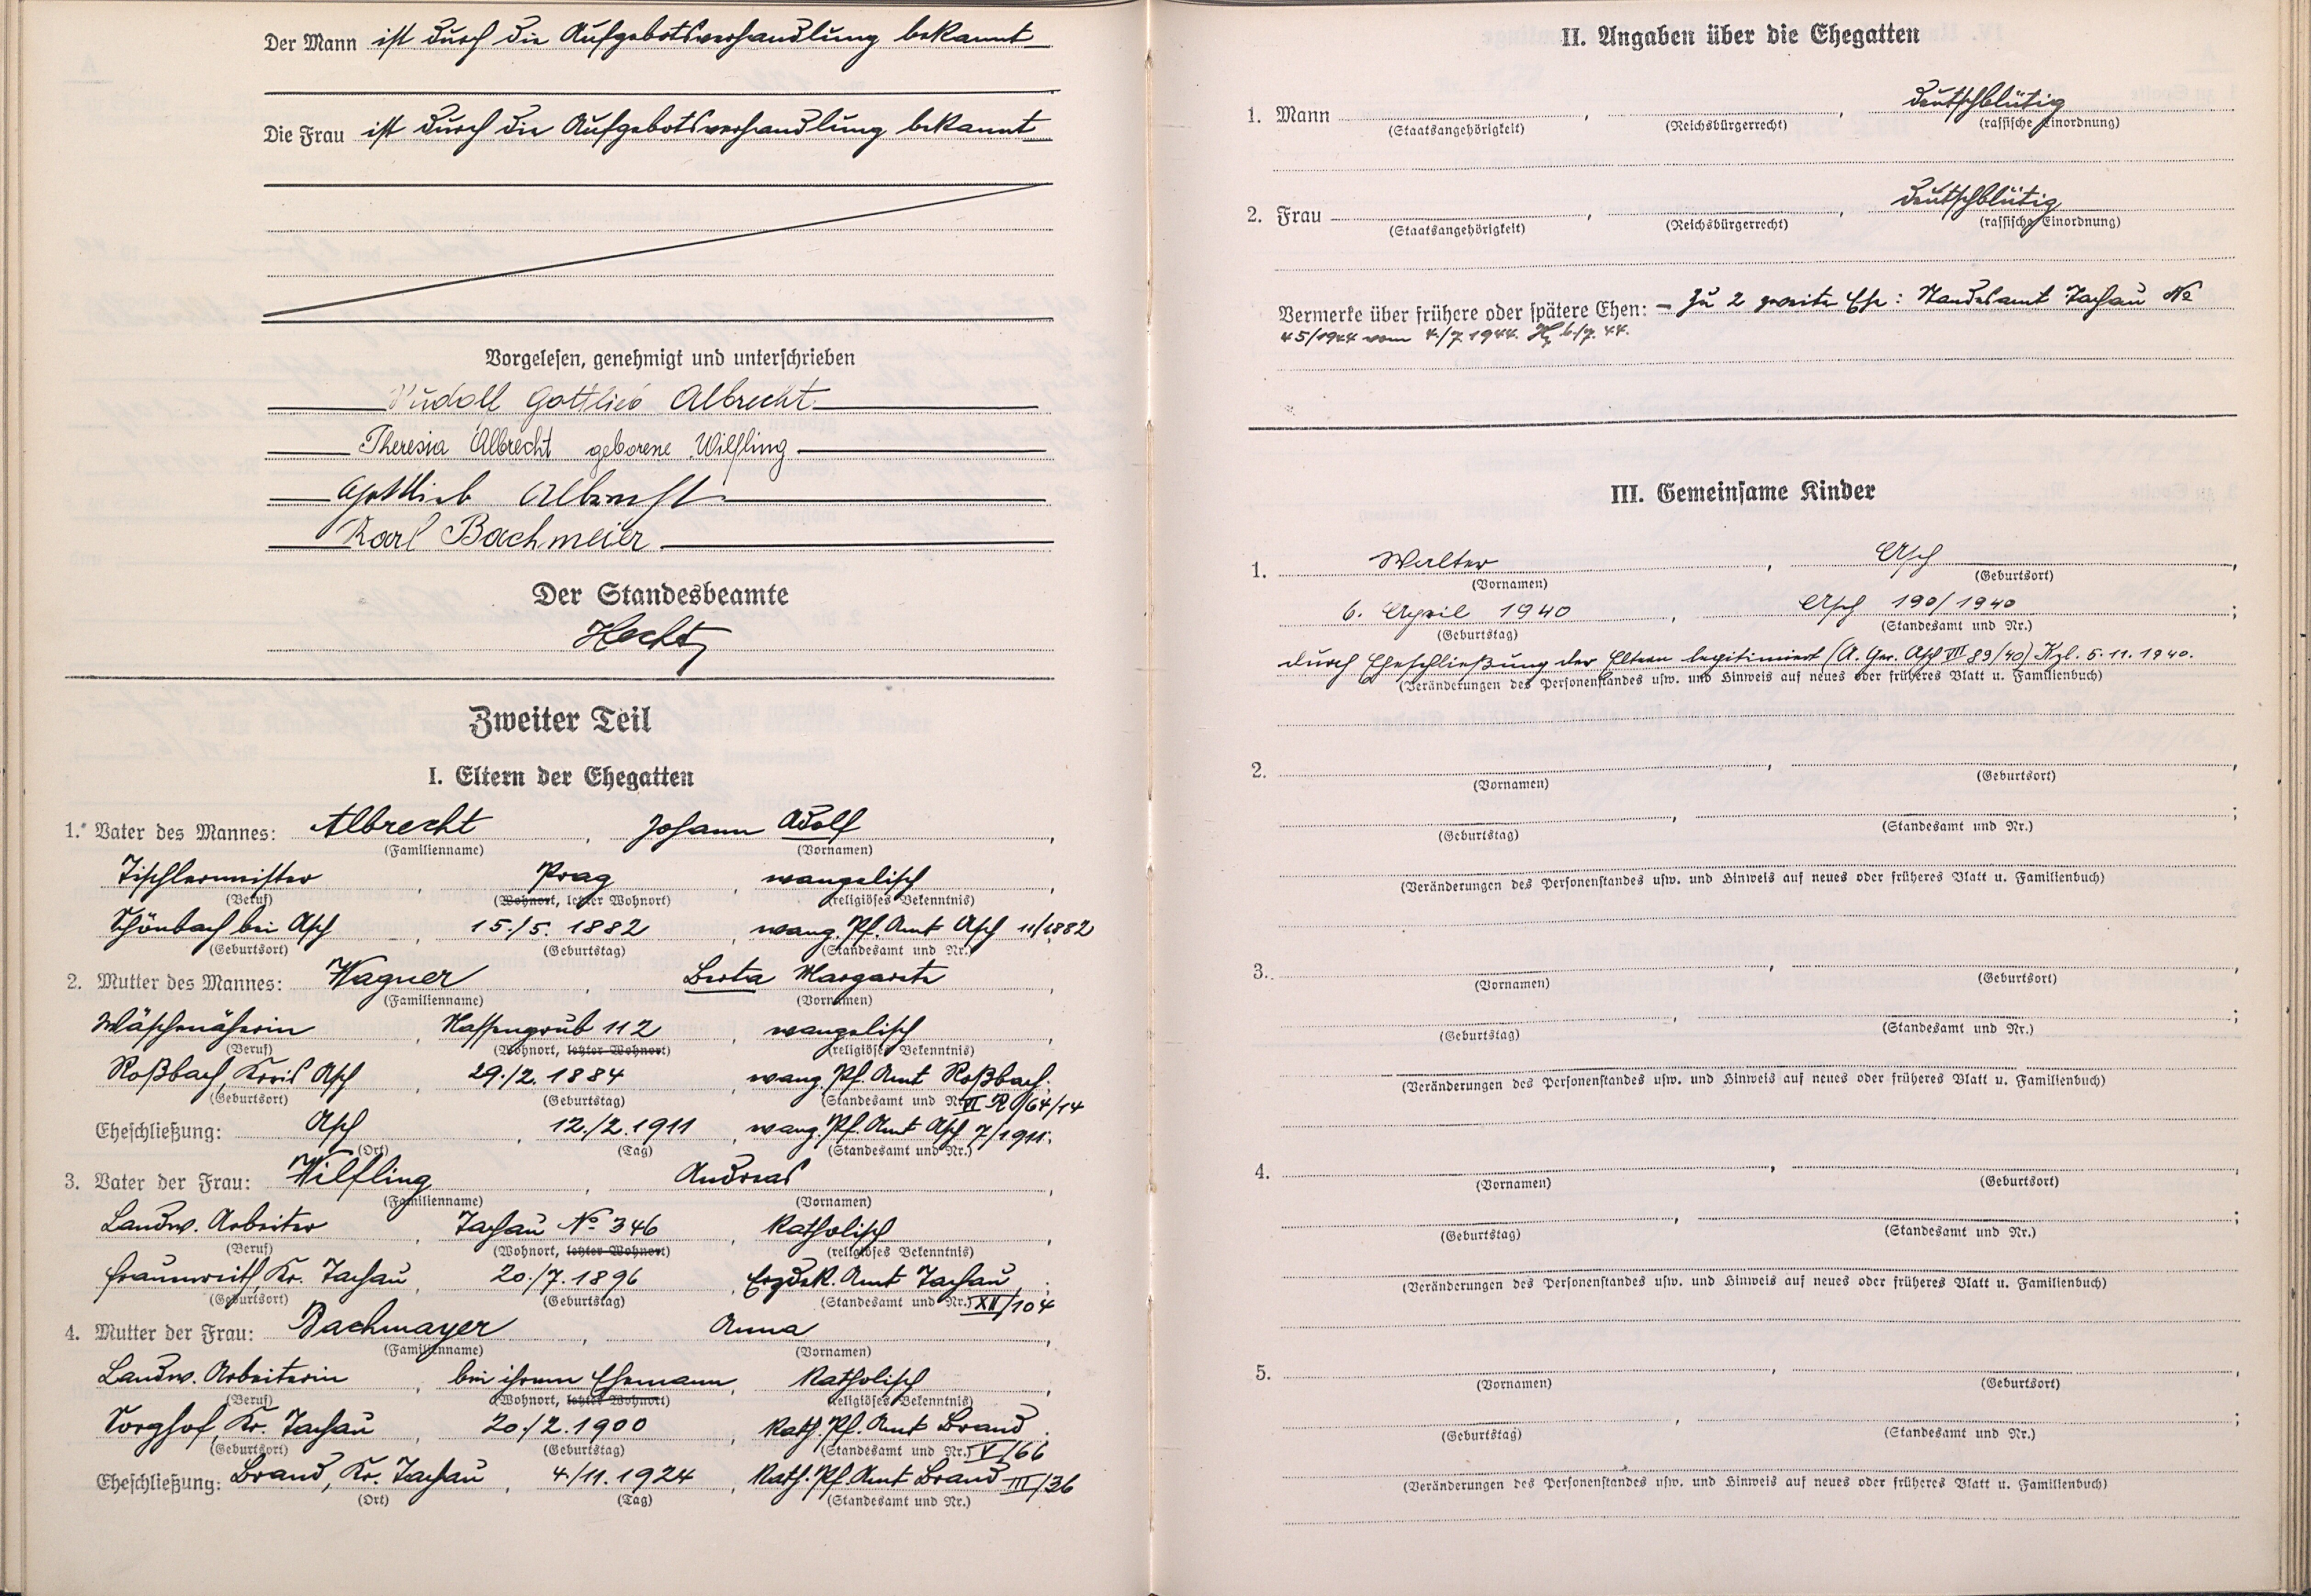 Der Mann ist durch die Aufgebotsverhandlung bekannt
Die Frau ist durch die Aufgebotsverhandlung bekannt
Vorgelesen, genehmigt und unterschrieben
Rudolf Gottlieb Albrecht
Theresia Albrecht geborene Wilfling
Gottlieb Albrecht
Karl Bachmeier
Der Standesbeamte
Hecht
Zweiter Teil
I. Eltern der Ehegatten
1. Vater des Mannes: Albrecht, Johann Adolf,
(Familienname) (Vornamen)
Tischlermeister, Prag, evangelisch,
(Beruf) (Wohnort, letzter Wohnort) (religiöses Bekenntnis)
Schönbach bei Asch, 15./5. 1882, evang. Pf. Amt Asch 11/1882
(Geburtsort) (Geburtstag) (Standesamt und Nr.)
2. Mutter des Mannes: Wagner, Berta Margarete,
(Familienname) (Vornamen)
Wäschenäherin, Hassengrub 112, evangelisch,
(Beruf) (Wohnort, letzter Wohnort) (religiöses Bekenntnis)
Roßbach, Kreis Asch, 29./2. 1884, evang. Pf. Amt Roßbach.
(Geburtsort) (Geburtstag) (Standesamt und Nr.) VI R/64/14
Eheschließung: Asch, 12./2. 1911, evang. Pf. Amt Asch 7/1911.
(Ort) (Tag) (Standesamt und Nr.)
3. Vater der Frau: Wilfling, Andreas,
(Familienname) (Vornamen)
Landw. Arbeiter, Tachau No. 346, katholisch,
(Beruf) (Wohnort, letzter Wohnort) (religiöses Bekenntnis)
Fraunreith, Kr. Tachau, 20./7. 1896, Erzdek. Amt Tachau;
(Geburtsort) (Geburtstag) (Standesamt und Nr.) XII/104
4. Mutter der Frau: Bachmayer, Anna,
(Familienname) (Vornamen)
Landw. Arbeiterin, bei ihrem Ehemann, katholisch,
(Beruf) (Wohnort, letzter Wohnort) (religiöses Bekenntnis)
Sorghof, Kr. Tachau, 20./2. 1900, Kath. Pf. Amt Brand.
(Geburtsort) (Geburtstag) (Standesamt und Nr.) V/66
Eheschließung: Brand, Kr. Tachau, 4./11. 1924, Kath. Pf. Amt Brand III/36
(Ort) (Tag) (Standesamt und Nr.)
II. Angaben über die Ehegatten
1. Mann , , deutschblütig
(Staatsangehörigkeit) (Reichsbürgerrecht) (rassische Einordnung)
2. Frau , , deutschblütig
(Staatsangehörigkeit) (Reichsbürgerrecht) (rassische Einordnung)
Vermerke über frühere oder spätere Ehen: – Zu 2 zweite Ehe: Standesamt Tachau No
45/1944 vom 4./7 1944. 6./7. 44.
III. Gemeinsame Kinder
1. Walter, Asch,
(Vornamen) (Geburtsort)
6. April 1940, Asch 190/1940;
(Geburtstag) (Standesamt und Nr.)
durch Eheschließung der Eltern legitimiert (A. Ger. Asch VII 89/40) Kzl. 5. 11. 1940.
(Veränderungen des Personenstandes usw. und Hinweis auf neues oder früheres Blatt u. Familienbuch)
2. , ,
(Vornamen) (Geburtsort)
, ;
(Geburtstag) (Standesamt und Nr.)
(Veränderungen des Personenstandes usw. und Hinweis auf neues oder früheres Blatt u. Familienbuch)
3. , ,
(Vornamen) (Geburtsort)
, ;
(Geburtstag) (Standesamt und Nr.)
(Veränderungen des Personenstandes usw. und Hinweis auf neues oder früheres Blatt u. Familienbuch)
4. , ,
(Vornamen) (Geburtsort)
, ;
(Geburtstag) (Standesamt und Nr.)
(Veränderungen des Personenstandes usw. und Hinweis auf neues oder früheres Blatt u. Familienbuch)
5. , ,
(Vornamen) (Geburtsort)
, ;
(Geburtstag) (Standesamt und Nr.)
(Veränderungen des Personenstandes usw. und Hinweis auf neues oder früheres Blatt u. Familienbuch)